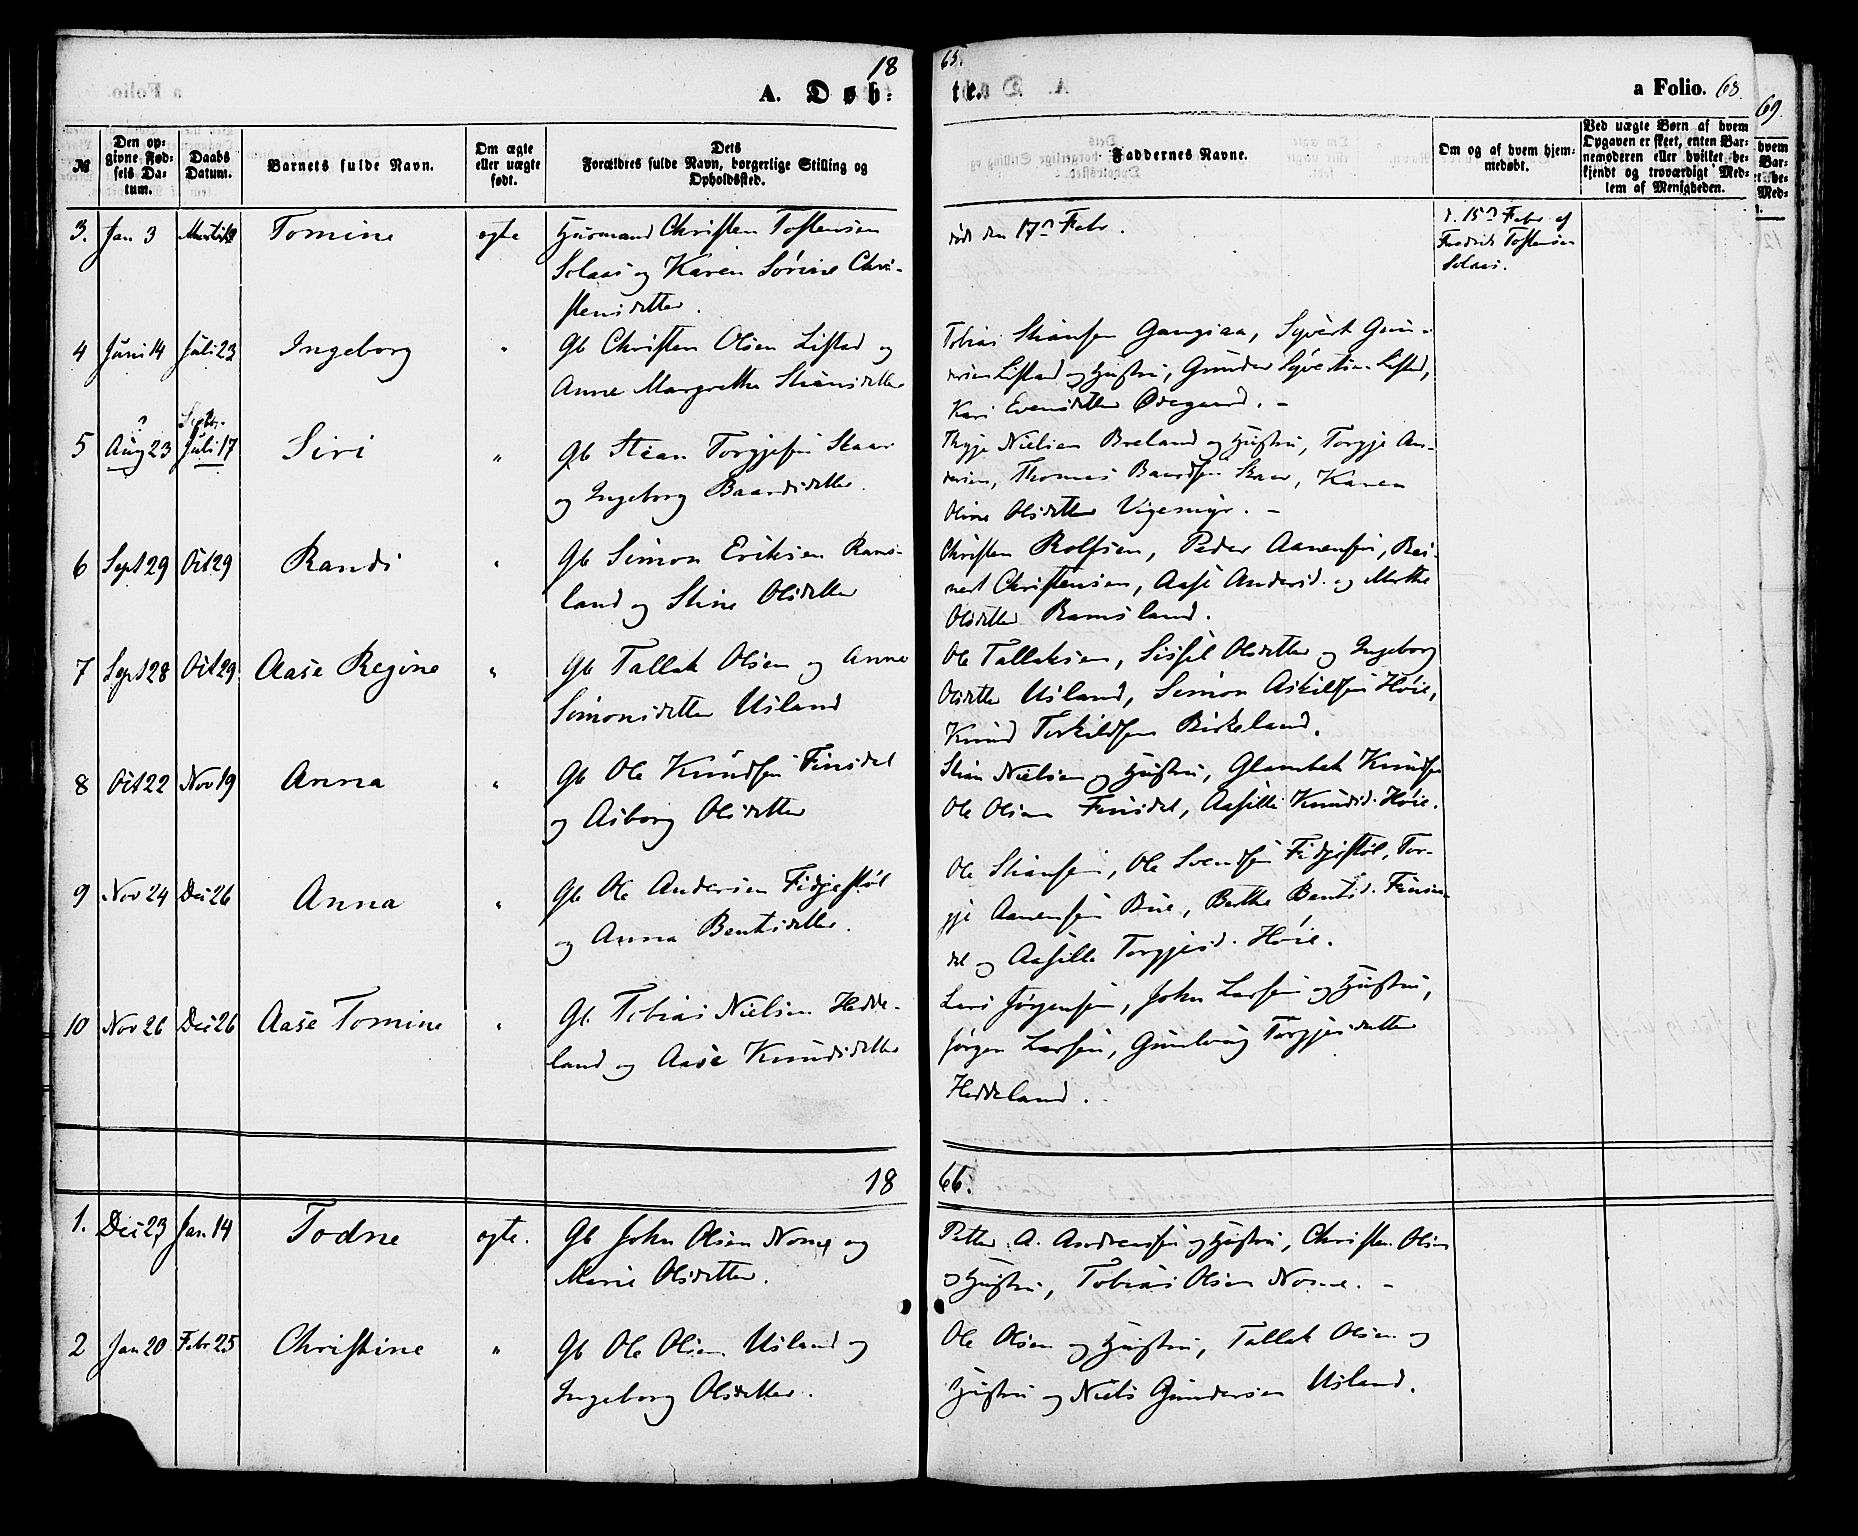 18
65.
A. Døb-
te.
a Folio. 68.
69.
№
Den op-
givne Fød-
sels Da-
tum.
Daabs
Datum.
Barnets fulde Navn.
Om ægte
eller uægte
født.
Dets
Forældres fulde Navn, borgerlige Stilling og
Opholdssted.
Faddernes Navne.
Om og af hvem hjem-
medøbt.
Ved uægte Børn af hvem
Opgaven er skeet, enten Bar-
nemoderen eller hvilket be-
kjendt og troværdigt Med-
lem af Menigheden.
3. Jan 3 Tomine ægte Huusmand Christen Tostensen
Solaas og Karen Sørine Chri-
stensdatter.
død den 17d Febr.
d. 15d Febr af
Fredrik Tostensen
Solaas.
4 Juni 14 Juli 23 Ingeborg " Gb Christen Olsen Listad og
Anne Margrethe Stiansdatter
Tobias Stiansen Gangsaa, Syvert Gun-
dersen Listad og Hustru, Gunder Syvertsen Listad,
Kari Evensdatter Ødegaard. -
?
Septbr.
5 Aug 23 Juli 17 Siri " Gb Stean Torgjesen Skaar
og Ingeborg Baardsdatter.
Nielsen Breland og Hustru, Torgje An-
dersen, Thomas Baardsen Skaar, Karen
Oline Olsdatter Vigemyr. -
6 Sept 29 Oct 29 Randi " Gb Simon Eriksen Rams-
land og Stine Olsdatter
Christen Rolfsen, Peder Aanensen, Rei-
nert Christensen, Aase Andersd. og Marthe
Olsdatter Ramsland.
7 Sept 28 Oct 29 Aase Regine " Gb Tallak Olsen og Anne
Simonsdatter Usland
Ole Tallaksen, Sissel Olsdatter og Ingeborg
Olsdatter Usland, Simon Askildsen Høie,
Knud Torkildsen Birkeland.
8 Oct 22 Nov 19 Anna " Gb Ole Knudsen Finsdal
og Asborg Olsdatter
Stian Nielsen og Hustru, Glambek Knudsen
Ole Olsen Finsdal, Aasille Knudsd. Høie.
9 Nov 24 Dec 26 Anna " Gb Ole Andersen Fidjestøl
og Anna Bentsdatter.
Ole Stiansen, Ole Svendsen Fidjestøl, Tor-
gje Aanensen Bue, Berthe Bentsd. Finsn-
dal og Aasille Torgjesd. Høie.
10 Nov 26 Dec 26 Aase Tomine " Gb. Tobias Nielsen Hedde-
land og Aase Knudsdatter
Lars Jørgensen, John Larsen og Hustru,
Jørgen Larsen, Gunborg Torgjesdatter
Heddeland.
18
66.
1. Dec 23 Jan. 14 Todne ægte. Gb John Olsen Nome og
Marie Olsdatter.
Petter A. Andreassen og Hustru, Christen Olsen
og Hustru, Tobias Olsen Nome. -
2 Jan 20 Febr 25 Christine " Gb Ole Olsen Usland og
Ingeborg Olsdatter.
Ole Olsen og Hustru, Tallak Olsen og
Hustru og Niels Gundersen Usland.